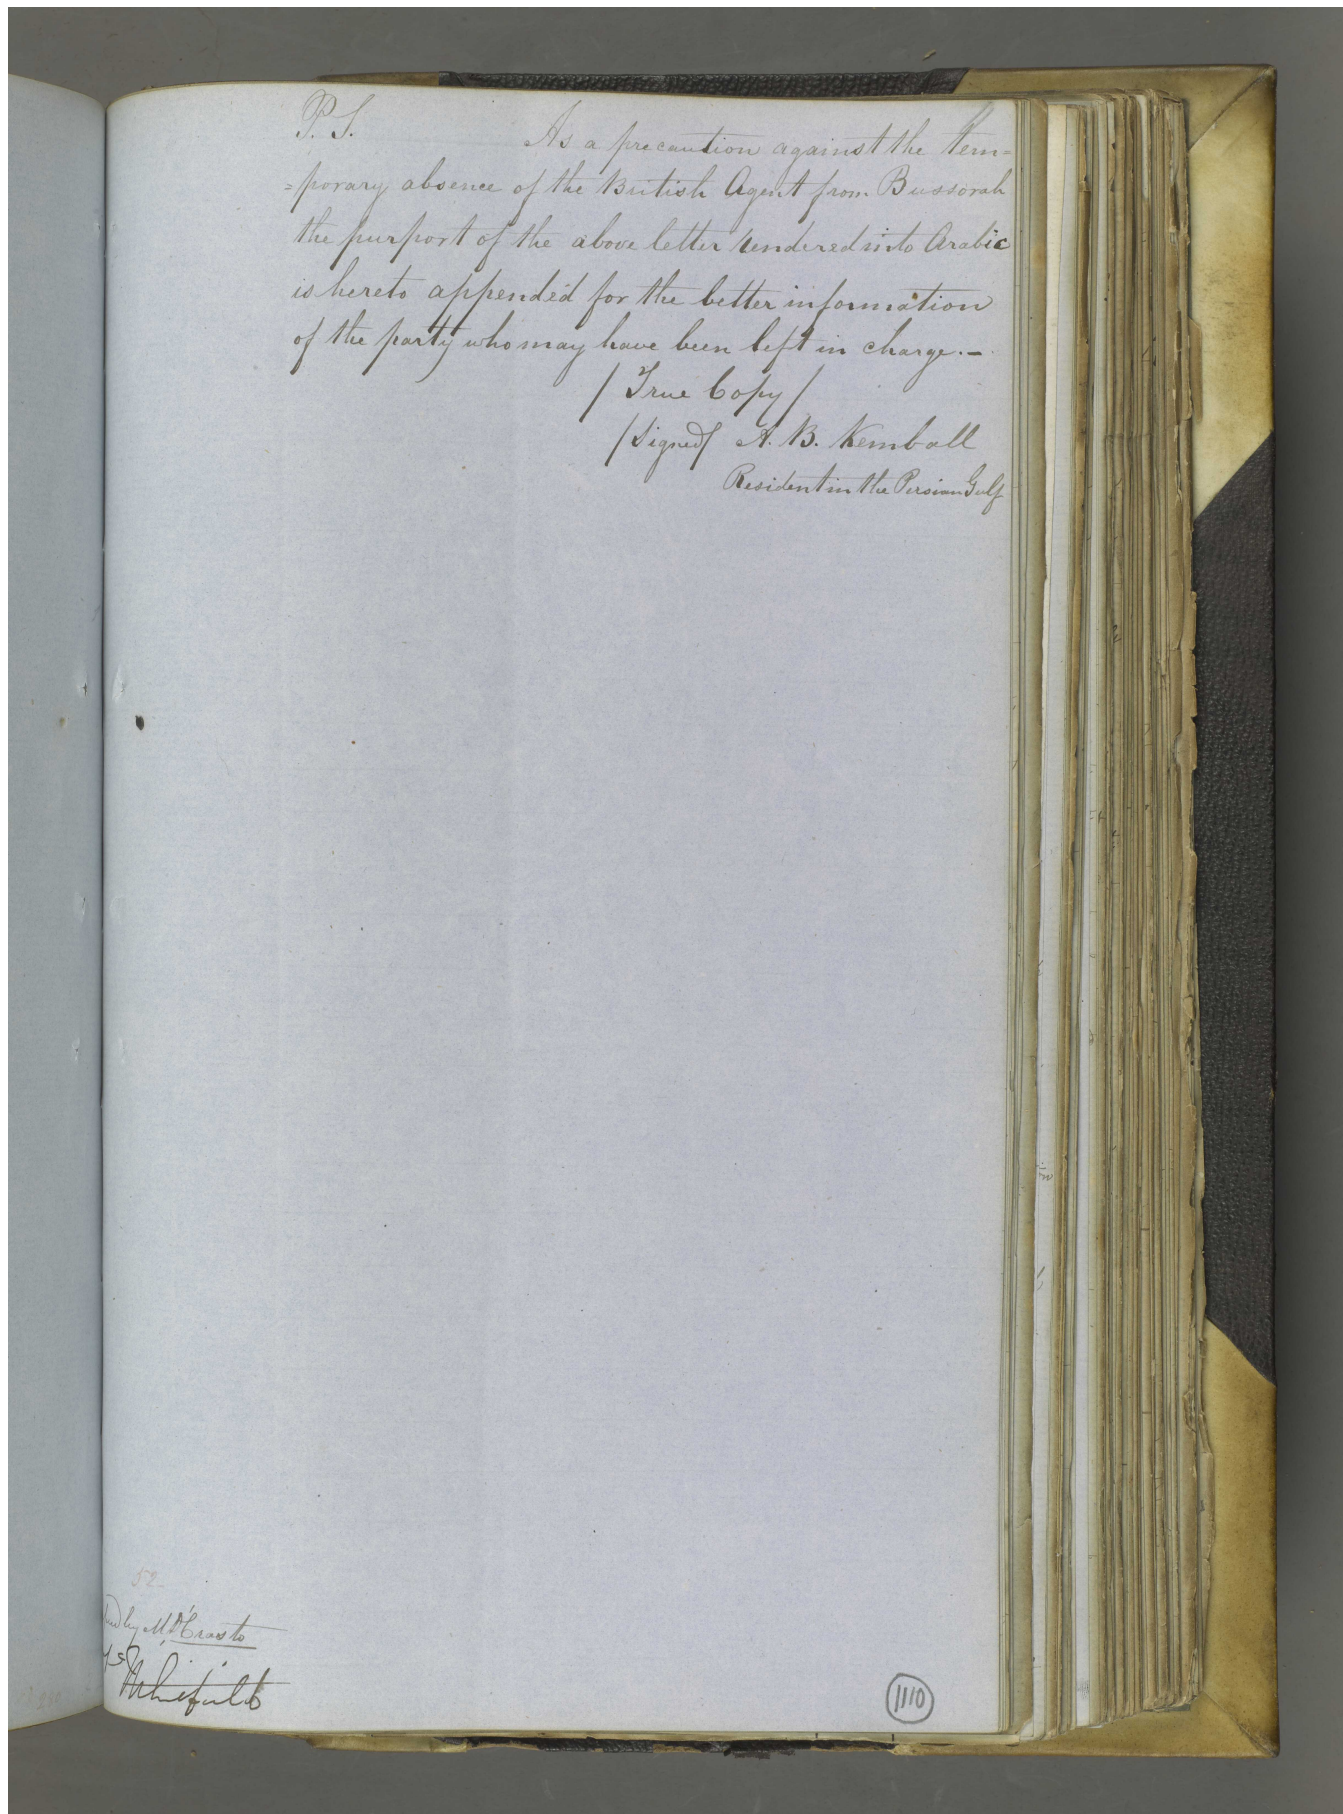 P. S.
As a precaution against the tem=
=porary absence of the British Agent from Bussorah
the purport of the above letter rendered into Arabic
is hereto appended for the better information
of the party who may have been left in charge.–
/True Copy/
/Signed/ A. B. Kemball
Resident in the Persian Gulf
52
by M. D'Crasto
1110